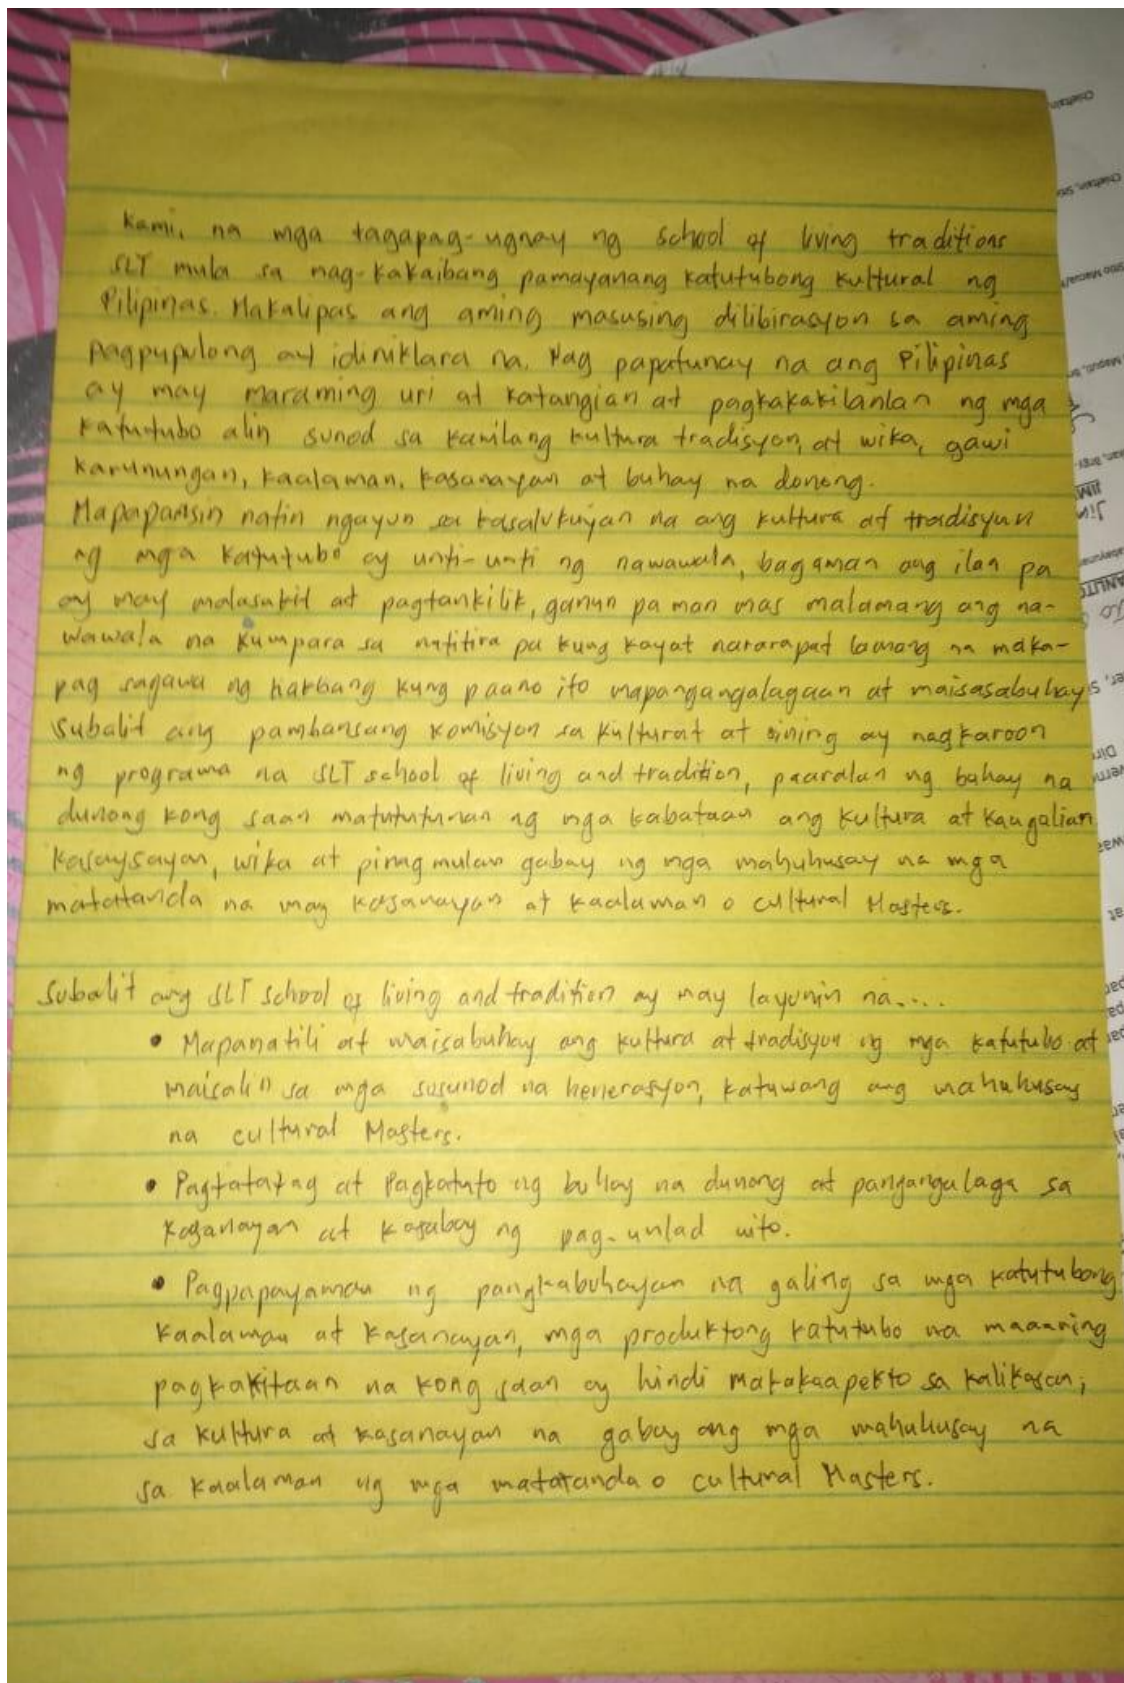 Kami, na mga tagapag-ugnay ng school of living traditions
SLT mula sa nag-kakaibang pamayanang katutubong kultural ng
Pilipinas. Makalipas ang aming masusing dilibirasyon sa aming
pagpupulong ay idiniklara na. Nag papatunay na ang Pilipinas
ay may maraming uri at katangian at pagkakakilanlan ng mga
katutubo alin sunod sa kanilang kultura tradisyon, at wika, gawi
karunungan, kaalaman, kasanayan at buhay na donong.
Mapapansin natin ngayun sa kasalukuyan na ang kultura at tradisyun
ng mga katutubo ay unti-unti ng nawawala, bagaman ang ilan pa
ay may malasakit at pagtankilik, ganun pa man mas malamang ang na-
wawala na kumpara sa natitira pa kung kayat nararapat lamang na maka-
pag sagawa ng hakbang kung paano ito mapangangalagaan at maisasabuhay
subalit ang pambansang komisyon sa kulturat at sining ay nagkaroon
ng programa na SLT school of living and tradition, paaralan ng buhay na
dunong kong saan matututunan ng mga kabataan ang kultura at kaugalian
kasaysayan, wika at pinag mulan gabay ng mga mahuhusay na mga
matatanda na may kasanayan at kaalaman o cultural Masters.
Subalit ang SLT school of living and tradition ay may layunin na....
• Mapanatili at maisabuhay ang kultura at tradisyun ng mga katutubo at
maisalin sa mga susunod na henerasyon, katuwang ang mahuhusay
na cultural Masters.
• Pagtatatag at Pagkatuto ng buhay na dunong at pangangalaga sa
kasanayan at kasabay ng pag-unlad nito.
• Pagpapayaman ng pangkabuhayan na galing sa mga katutubong
kaalaman at kasanayan, mga produktong katutubo na maaaring
pagkakitaan na kong saan ay hindi makakaapekto sa kalikasan,
sa kultura at kasanayan na gabay ang mga mahuhusay na
sa kaalaman ng mga matatanda o cultural Masters.
Chieftain
Chieftain, Sitio